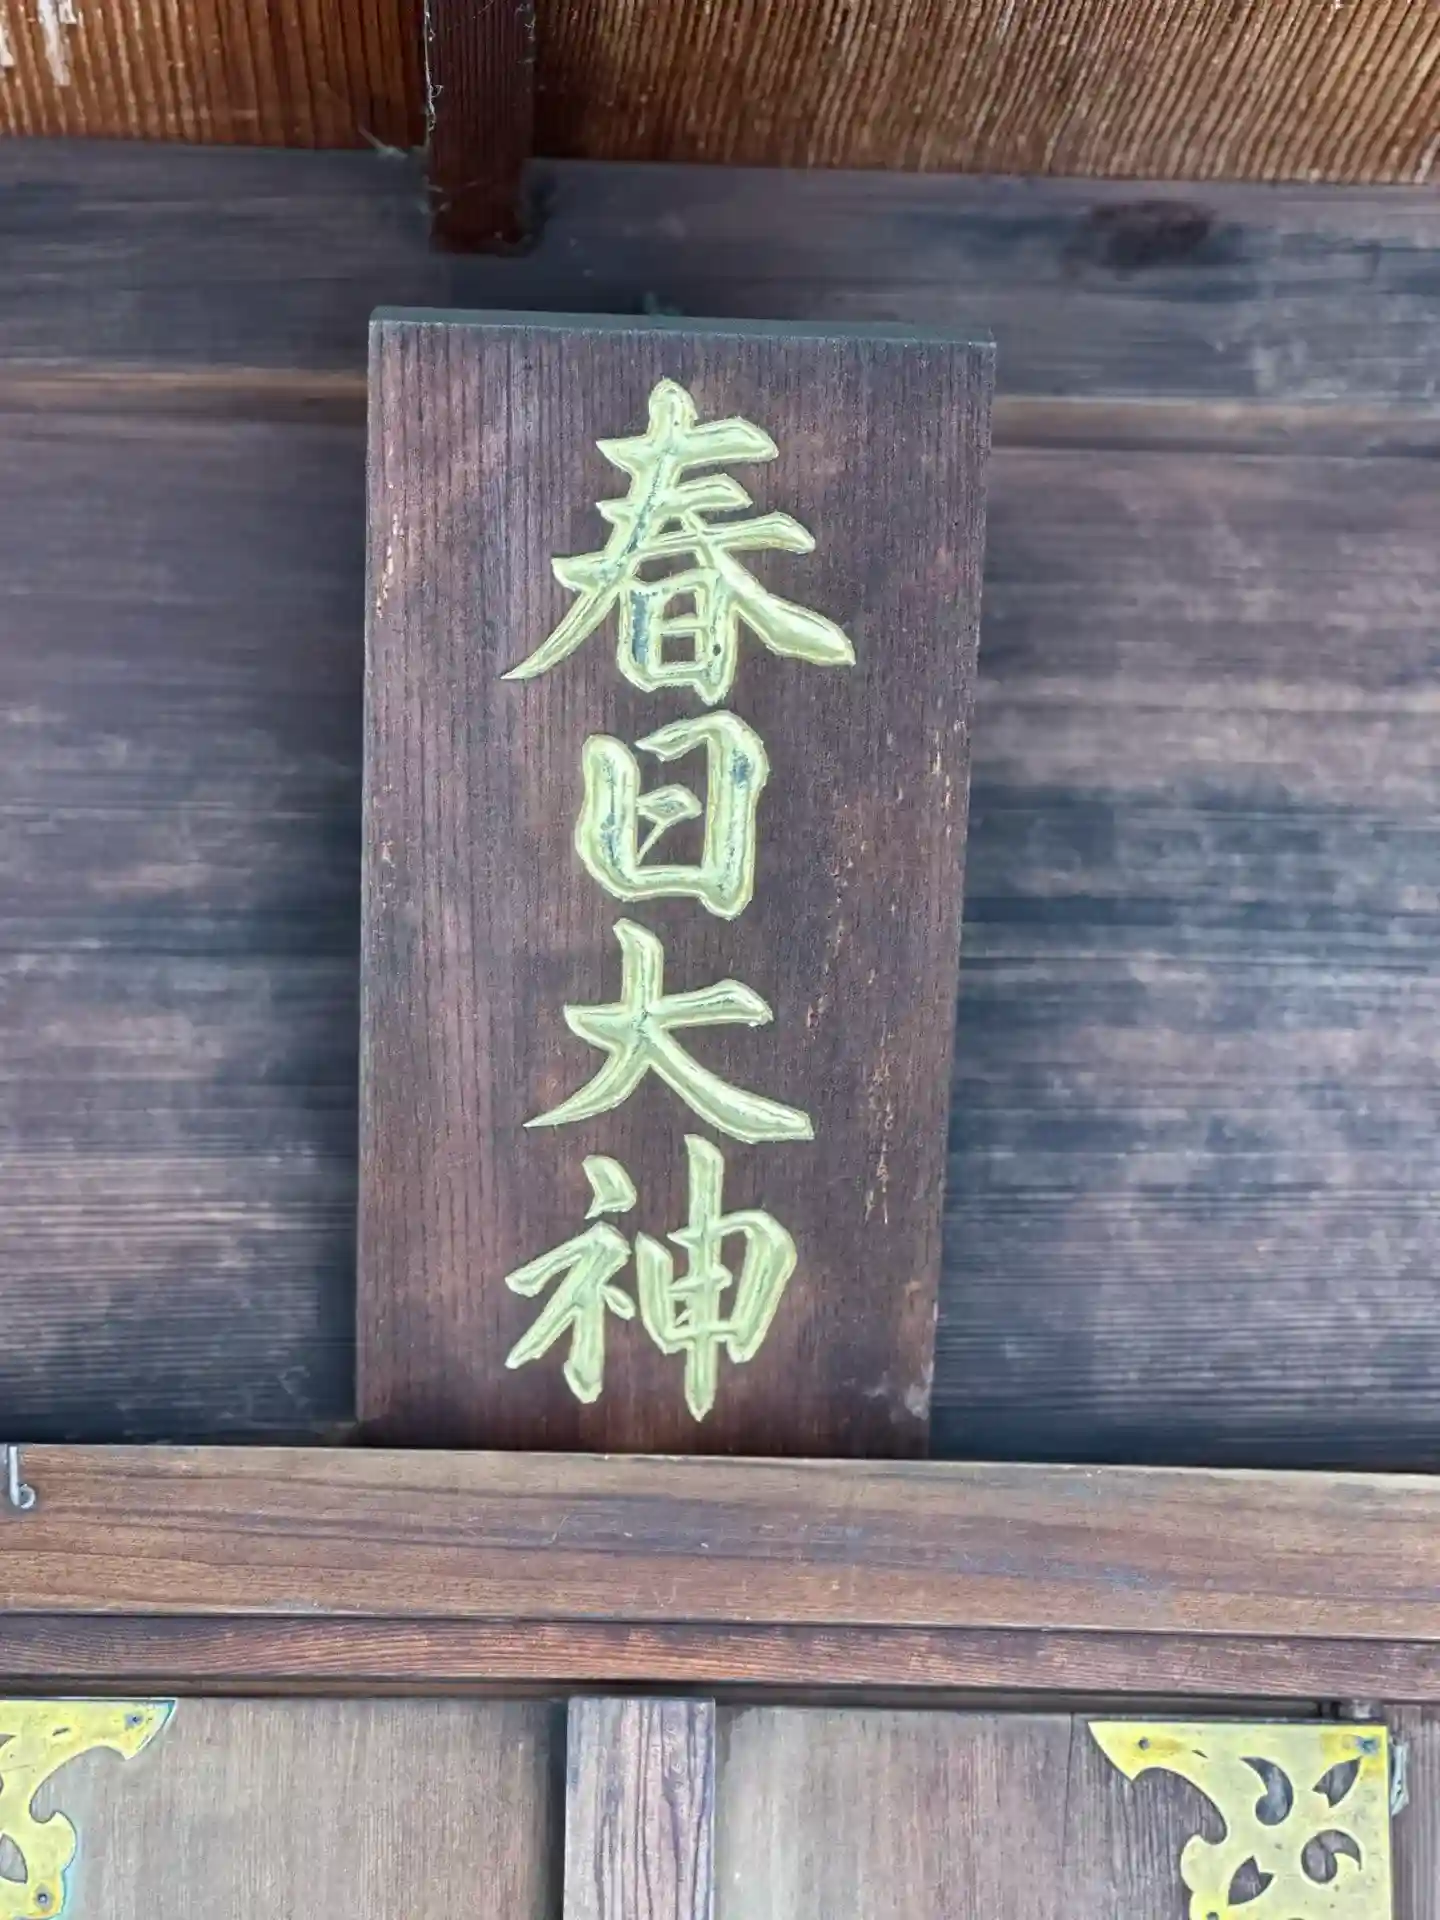 春日大神